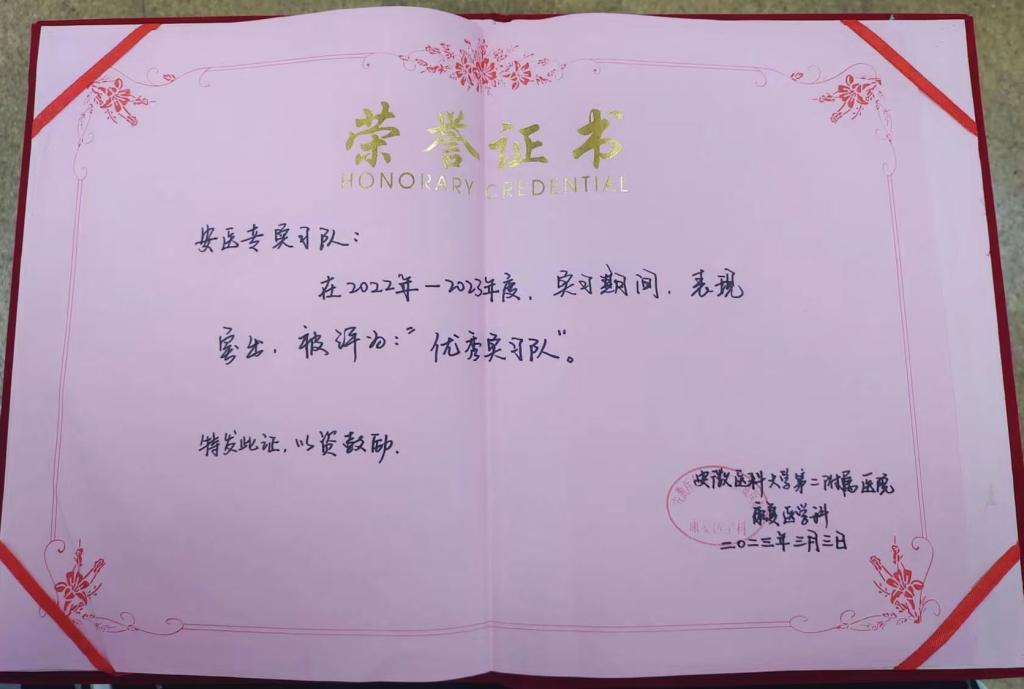 荣誉证书
HONORARY CREDENTIAL
安医专实习队：
在2022年-2023年度，实习期间，表现
突出，被评为：“优秀实习队”。
特发此证，以资鼓励.
安徽医科大学第二附属医院
康复医学科
二〇二三年三月三日
康复医学科